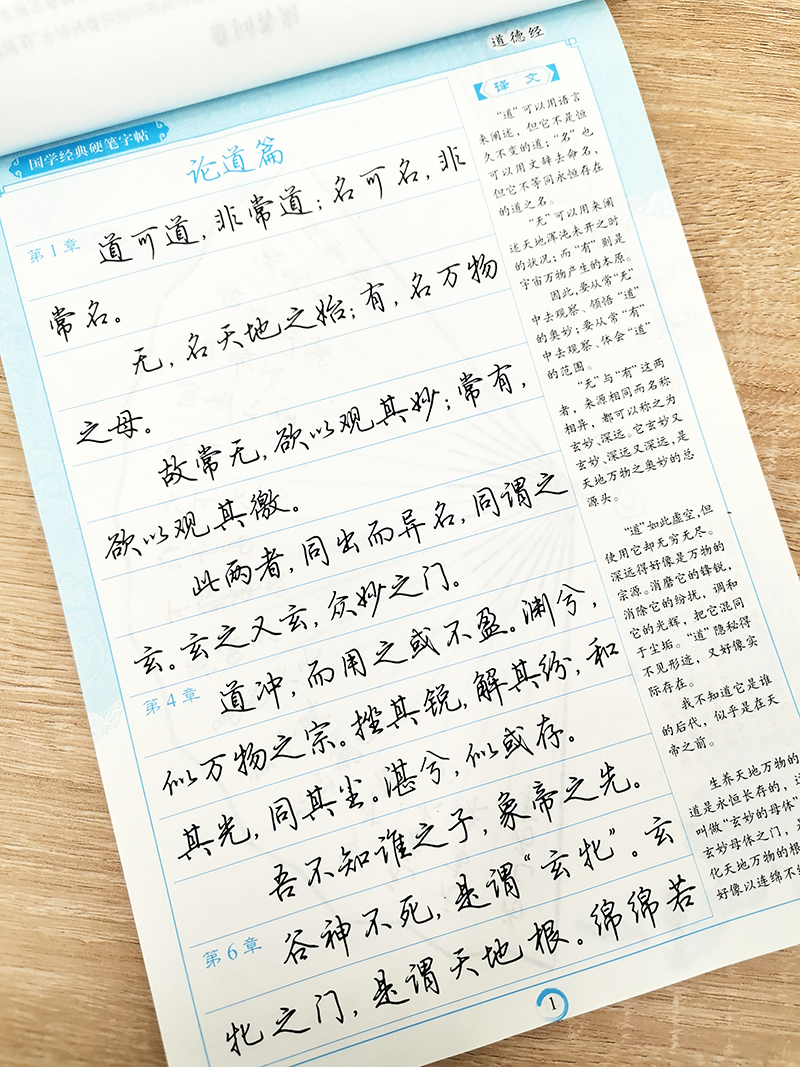 道德经
国学经典硬笔字帖
论道篇
第1章 道可道，非常道；名可名，非
常名。
无，名天地之始；有，名万物
之母。
故常无，欲以观其妙；常有，
欲以观其徼。
此两者，同出而异名，同谓之
玄。玄之又玄，众妙之门。
第4章 道冲，而用之或不盈。渊兮，
似万物之宗。挫其锐，解其纷，和
其光，同其尘。湛兮，似或存。
吾不知谁之子，象帝之先。
第6章 谷神不死，是谓“玄牝”。玄
牝之门，是谓天地根。绵绵若
译文
“道”可以用语言
来阐述，但它不是恒
久不变的道；“名”也
可以用文辞去命名，
但它不等同永恒存在
的道之名。
“无”可以用来阐
述天地浑沌未开之时
的状况；而“有”则是
宇宙万物产生的本原。
因此，要从常“无”
中去观察、领悟“道”
的奥妙；要从常“有”
中去观察、体会“道”
的范围。
“无”与“有”这两
者，来源相同而名称
相异，都可以称之为
玄妙、深远。它玄妙又
玄妙、深远又深远，是
天地万物之奥妙的总
源头。
“道”如此虚空，但
使用它却无穷无尽。
深远得好像是万物的
宗源。消磨它的锋锐，
消除它的纷扰，调和
它的光辉，把它混同
于尘垢。“道”隐秘得
不见形迹，又好像实
际存在。
我不知道它是谁
的后代，似乎是在天
帝之前。
生养天地万物的
道是永恒长存的，这
叫做“玄妙的母体”
玄妙母体之门，
化天地万物的根
好像以连绵不
1